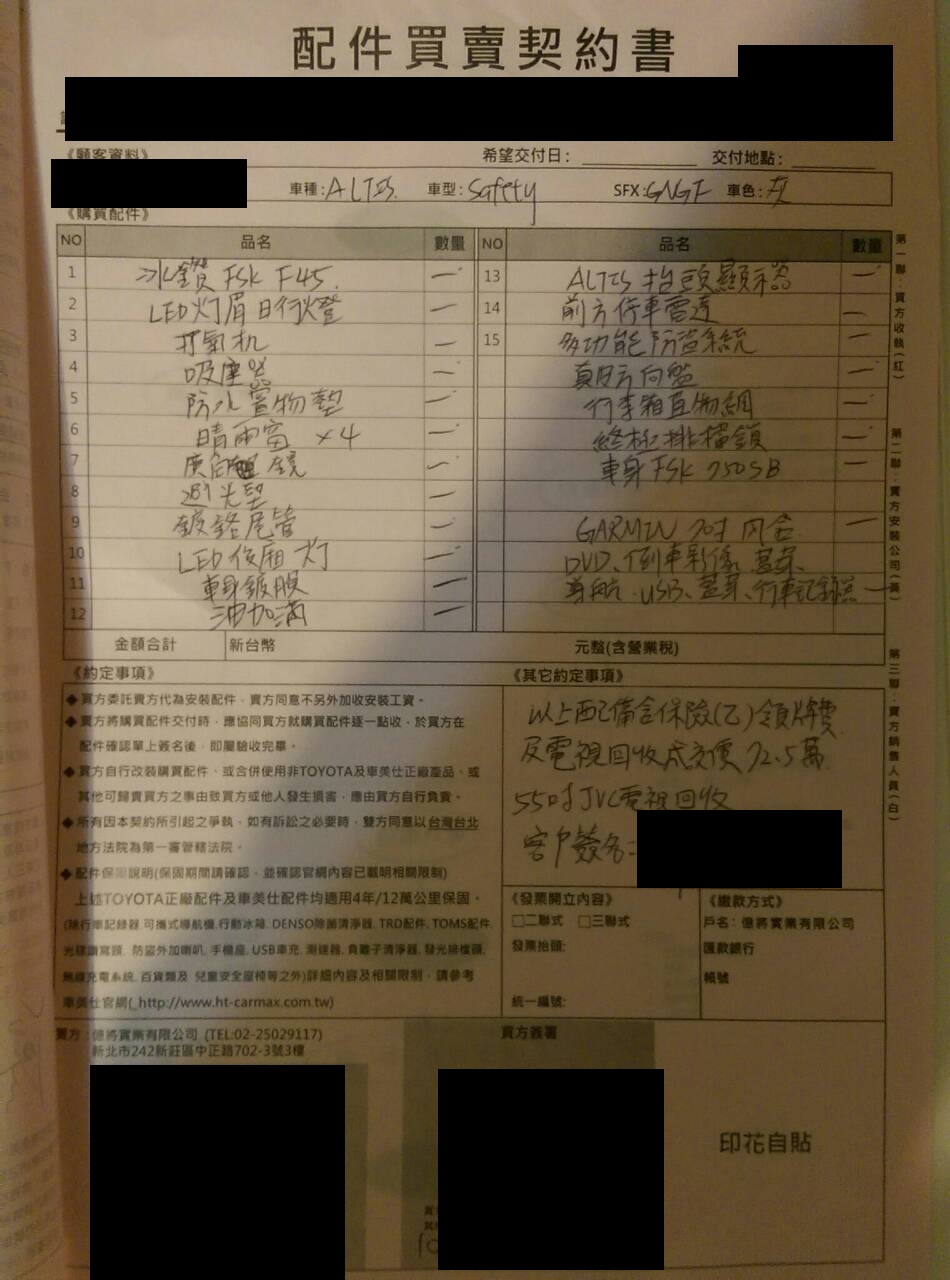 配件買賣契約書
《顧客資料》 希望交付日: 交付地點:
車種:ALTIS 車型:Safety SFX:GNGF 車色:灰
《購買配件》
NO 品名 數量 NO 品名 數量
1 冰鑽 FSK F45. 一 13 ALTIS 抬頭顯示器 一
2 LED 灯眉 日行燈 一 14 前方停車雷達 一
3 打氣机 一 15 多功能防盜系統 一
4 吸塵器 一 真皮方向盤 一
5 防水置物墊 一 行李箱置物網
6 晴雨窗 ×4 一 終極排檔鎖 一
7 廣角 鏡 一 車身 FSK 750SB 一
8 避光墊 一
9 鍍鉻尾管 一 GARMIN 內含 一
10 LED 後廂灯 一 DVD、倒車影像、藍芽、
11 車身鍍膜 一 導航、USB、藍芽、行車記錄器 一
12 油加滿 一
金額合計 新台幣 元整(含營業稅)
第一聯:買方收執(紅)
第二聯:賣方安裝公司(黃)
第三聯:賣方銷售人員(白)
《約定事項》
◆買方委託賣方代為安裝配件,賣方同意不另外加收安裝工資。
◆賣方將購買配件交付時,應協同買方就購買配件逐一點收,於買方在
配件確認單上簽名後,即屬驗收完畢。
◆買方自行改裝購買配件、或合併使用非TOYOTA及車美仕正廠產品、或
其他可歸責買方之事由致買方或他人發生損害,應由買方自行負責。
◆所有因本契約所引起之爭執,如有訴訟之必要時,雙方同意以台灣台北
地方法院為第一審管轄法院。
◆配件保固說明(保固期間請確認,並確認官網內容已載明相關限制)
上述TOYOTA正廠配件及車美仕配件均適用4年/12萬公里保固。
(除行車記錄器,可攜式導航機,行動冰箱,DENSO除菌清淨器,TRD配件,TOMS配件,
光碟讀寫頭,防盜外加喇叭,手機座,USB車充,測速器,負離子清淨器,發光排檔頭,
無線充電系統,百貨類及 兒童安全座椅等之外)詳細內容及相關限制,請參考
車美仕官網(_http://www.ht-carmax.com.tw)
《其它約定事項》
以上配備含保險(乙)領牌費
及電視回收成交價 72.5萬
55吋JVC電視回收
客戶簽名:
《發票開立內容》
□二聯式 □三聯式
發票抬頭:
統一編號:
《繳款方式》
戶名:億將實業有限公司
匯款銀行
帳號
賣方:億將實業有限公司 (TEL:02-25029117)
新北市242新莊區中正路702-3號3樓
買方簽署
印花自貼